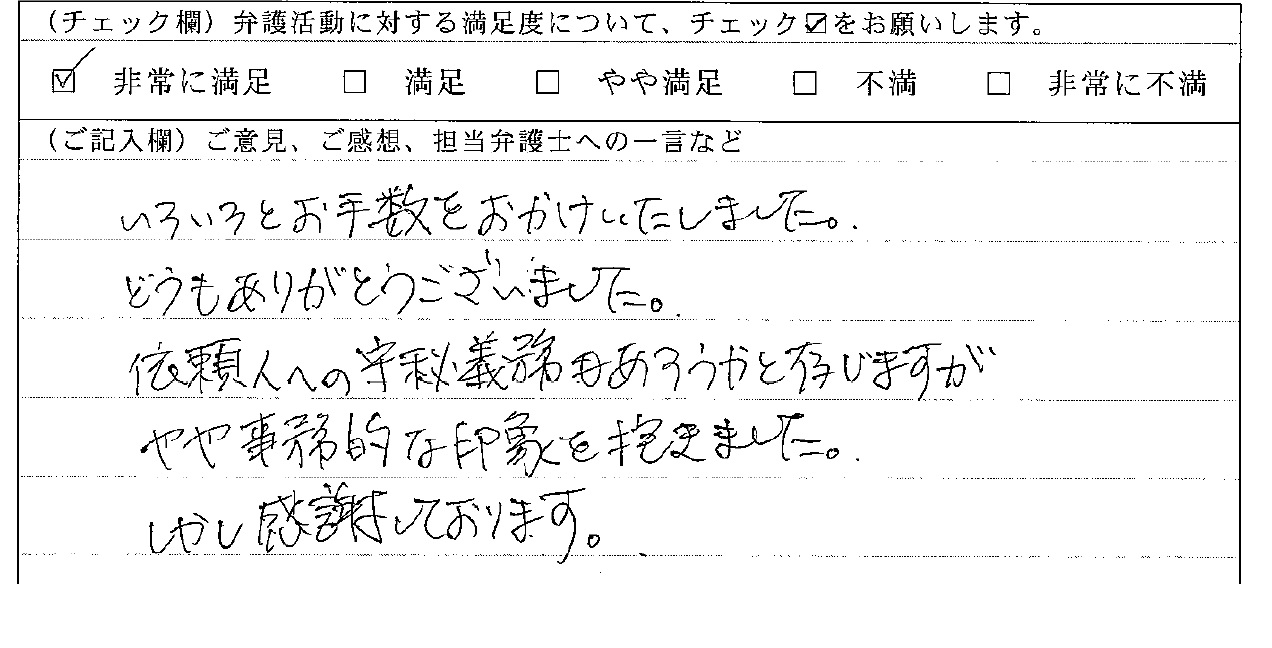 (チェック欄) 弁護活動に対する満足度について、チェック☑をお願いします。
☑ 非常に満足 □ 満足 □ やや満足 □ 不満 □ 非常に不満
(ご記入欄) ご意見、ご感想、担当弁護士への一言など
いろいろとお手数をおかけいたしました。
どうもありがとうございました。
依頼人への守秘義務もあろうかと存じますが
やや事務的な印象を抱きました。
しかし感謝はしております。